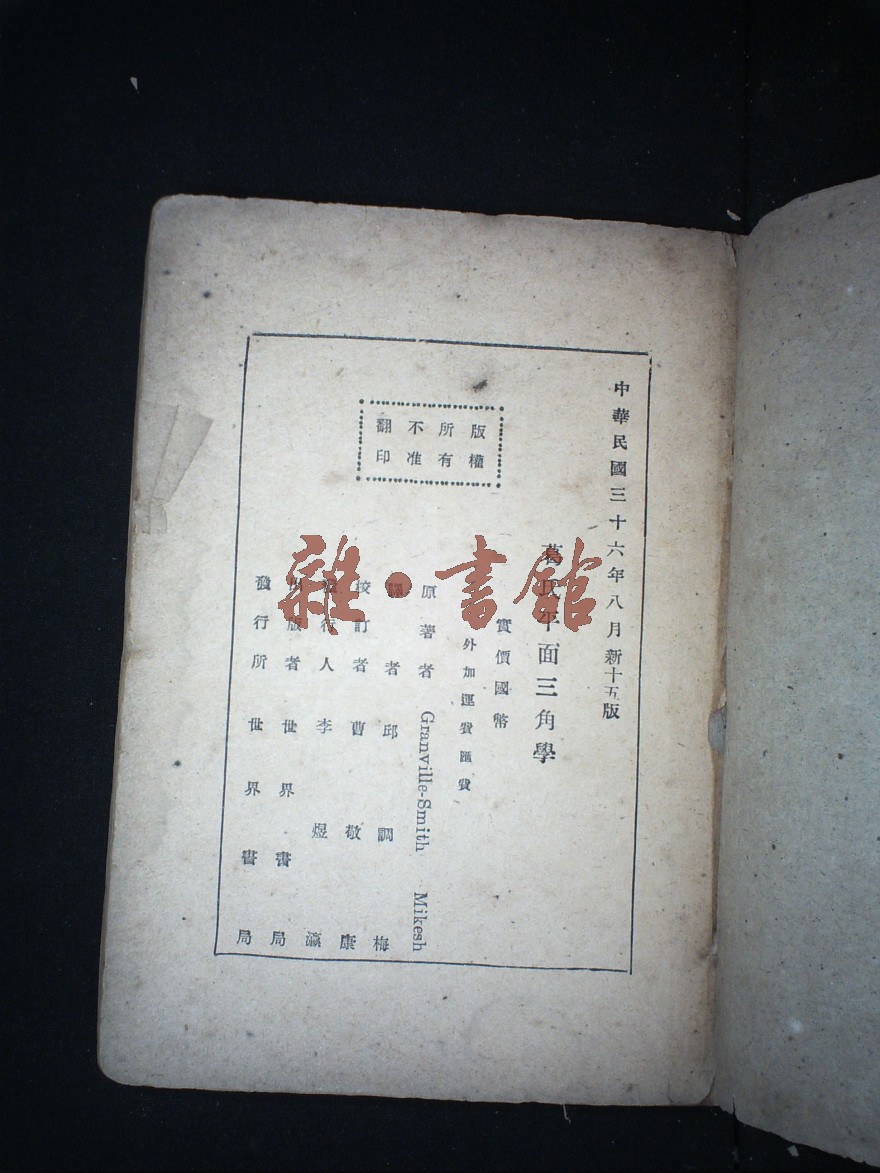 中華民國三十六年八月新十五版
葛氏平面三角學
實價國幣
外加運費匯費
原著者 Granville-Smith Mikesh
譯者 邱調梅
校訂者 曹敬康
發行人 李煜瀛
出版者 世界書局
發行所 世界書局
版權
所有
不准
翻印
雜·書館